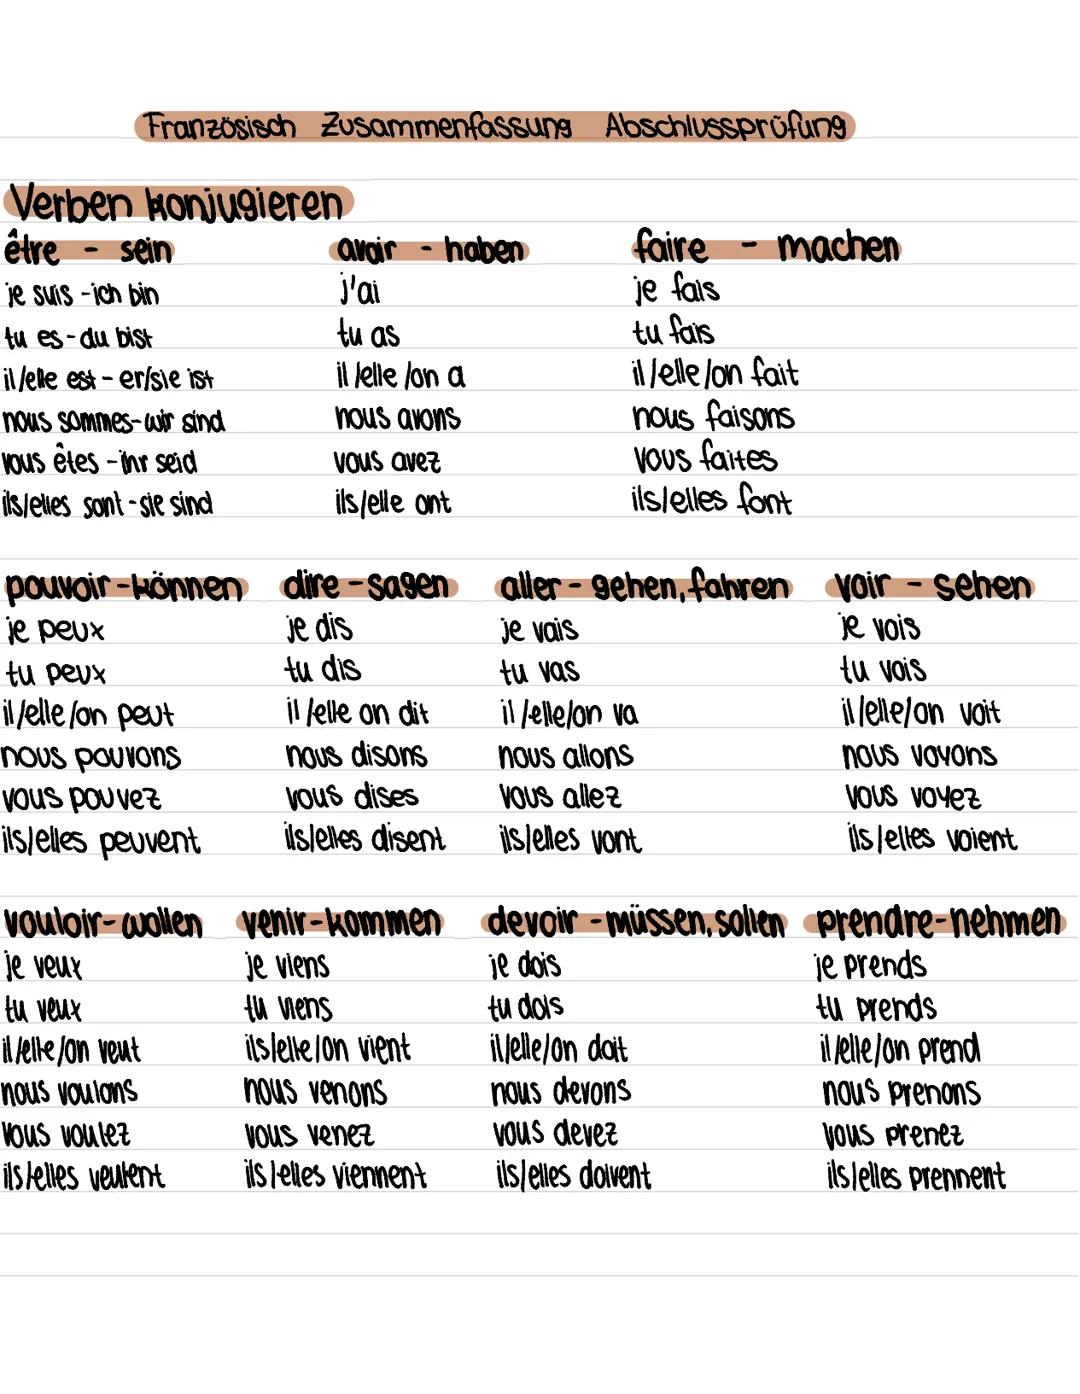 Französisch Zusammenfassung Abschlussprüfung
Verben konjugieren
être - sein
je suis - ich bin
tu es - du bist
il/elle est - er/sie ist
nous sommes - wir sind
vous êtes - ihr seid
ils/elles sont - sie sind
avoir - haben
j'ai
tu as
il/elle/on a
nous avons
vous avez
ils/elle ont
faire - machen
je fais
tu fais
il/elle/on fait
nous faisons
vous faites
ils/elles font
pouvoir - können
je peux
tu peux
il/elle/on peut
nous pouvons
vous pouvez
ils/elles peuvent
dire - sagen
je dis
tu dis
il/elle on dit
nous disons
vous dises
ils/elles disent
aller - gehen, fahren
je vais
tu vas
il/elle/on va
nous allons
vous allez
ils/elles vont
voir - sehen
je vois
tu vois
il/elle/on voit
nous voyons
vous voyez
ils/elles voient
vouloir - wollen
je veux
tu veux
il/elle/on veut
nous voulons
vous voulez
ils/elles veulent
venir - kommen
je viens
tu viens
ils/elle/on vient
nous venons
vous venez
ils/elles viennent
devoir - müssen, sollen
je dois
tu dois
il/elle/on doit
nous devons
vous devez
ils/elles doivent
prendre - nehmen
je prends
tu prends
il/elle/on prend
nous prenons
vous prenez
ils/elles prennent